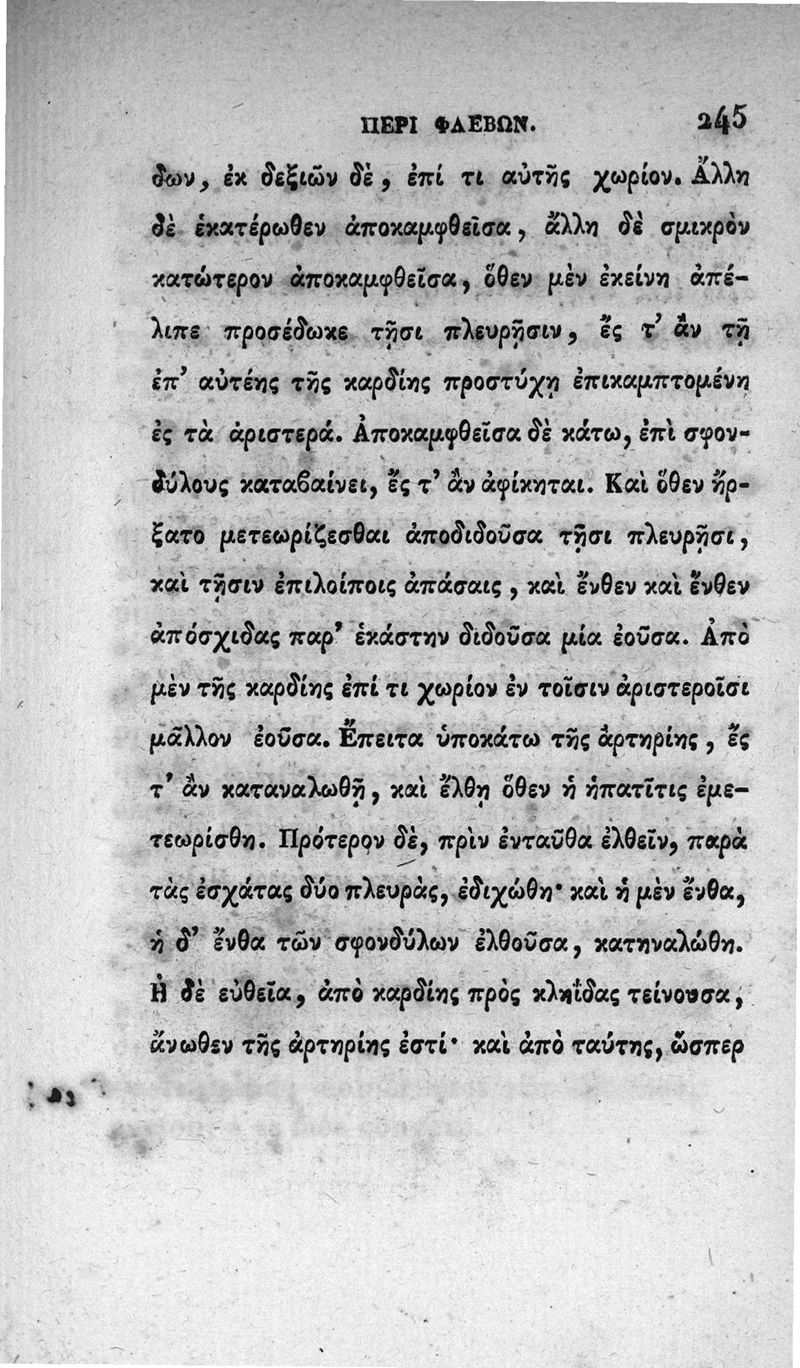 ΠΕΡΙ ΦΛΕΒΩΝ. 245
δων, ἐκ δεξιῶν δὲ, ἐπί τι αὐτῆς χωρίον. Ἄλλη
δὲ ἑκατέρωθεν ἀποκαμφθεῖσα, ἄλλη δὲ σμικρὸν
κατώτερον ἀποκαμφθεῖσα, ὅθεν μὲν ἐκείνη ἀπέ-
λιπε προσέδωκε τῇσι πλευρῇσιν, ἔς τ’ ἂν τῇ
ἐπ’ αὐτέης τῆς καρδίης προστύχῃ ἐπικαμπτομένη
ἐς τὰ ἀριστερά. Ἀποκαμφθεῖσα δὲ κάτω, ἐπὶ σφον-
δύλους καταβαίνει, ἔς τ’ ἂν ἀφίκηται. Καὶ ὅθεν ἤρ-
ξατο μετεωρίζεσθαι ἀποδιδοῦσα τῇσι πλευρῇσι,
καὶ τῇσιν ἐπιλοίποις ἁπάσαις, καὶ ἔνθεν καὶ ἔνθεν
ἀπόσχιδας παρ’ ἑκάστην διδοῦσα μία ἐοῦσα. Ἀπὸ
μὲν τῆς καρδίης ἐπί τι χωρίον ἐν τοῖσιν ἀριστεροῖσι
μᾶλλον ἐοῦσα. Ἔπειτα ὑποκάτω τῆς ἀρτηρίης, ἔς
τ’ ἂν καταναλωθῇ, καὶ ἔλθῃ ὅθεν ἡ ἡπατῖτις ἐμε-
τεωρίσθη. Πρότερον δὲ, πρὶν ἐνταῦθα ἐλθεῖν, παρὰ
τὰς ἐσχάτας δύο πλευρὰς, ἐδιχώθη· καὶ ἡ μὲν ἔνθα,
ἡ δ’ ἔνθα τῶν σφονδύλων ἐλθοῦσα, κατηναλώθη.
Ἡ δὲ εὐθεῖα, ἀπὸ καρδίης πρὸς κληΐδας τείνουσα,
ἄνωθεν τῆς ἀρτηρίης ἐστί· καὶ ἀπὸ ταύτης, ὥσπερ